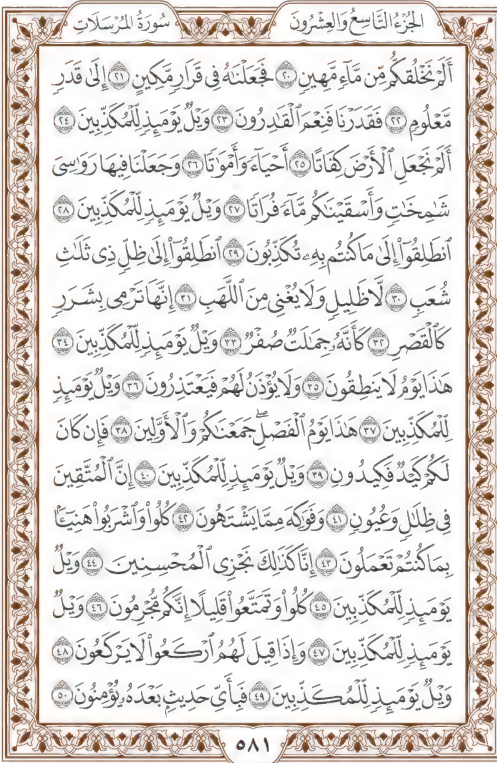 الجُزْءُ التَّاسِعُ وَالعِشْرُونَ سُورَةُ المُرْسَلَات
أَلَمْ نَخْلُقكُّم مِّن مَّآءٍ مَّهِينٍ ۝٢٠ فَجَعَلْنَٰهُ فِى قَرَارٍ مَّكِينٍ ۝٢١ إِلَىٰ قَدَرٍ
مَّعْلُومٍ ۝٢٢ فَقَدَرْنَا فَنِعْمَ ٱلْقَٰدِرُونَ ۝٢٣ وَيْلٌ يَوْمَئِذٍ لِّلْمُكَذِّبِينَ ۝٢٤
أَلَمْ نَجْعَلِ ٱلْأَرْضَ كِفَاتًا ۝٢٥ أَحْيَآءً وَأَمْوَٰتًا ۝٢٦ وَجَعَلْنَا فِيهَا رَوَٰسِىَ
شَٰمِخَٰتٍ وَأَسْقَيْنَٰكُم مَّآءً فُرَاتًا ۝٢٧ وَيْلٌ يَوْمَئِذٍ لِّلْمُكَذِّبِينَ ۝٢٨
ٱنطَلِقُوٓا۟ إِلَىٰ مَا كُنتُم بِهِۦ تُكَذِّبُونَ ۝٢٩ ٱنطَلِقُوٓا۟ إِلَىٰ ظِلٍّ ذِى ثَلَٰثِ
شُعَبٍ ۝٣٠ لَّا ظَلِيلٍ وَلَا يُغْنِى مِنَ ٱللَّهَبِ ۝٣١ إِنَّهَا تَرْمِى بِشَرَرٍ
كَٱلْقَصْرِ ۝٣٢ كَأَنَّهُۥ جِمَٰلَتٌ صُفْرٌ ۝٣٣ وَيْلٌ يَوْمَئِذٍ لِّلْمُكَذِّبِينَ ۝٣٤
هَٰذَا يَوْمُ لَا يَنطِقُونَ ۝٣٥ وَلَا يُؤْذَنُ لَهُمْ فَيَعْتَذِرُونَ ۝٣٦ وَيْلٌ يَوْمَئِذٍ
لِّلْمُكَذِّبِينَ ۝٣٧ هَٰذَا يَوْمُ ٱلْفَصْلِ ۖ جَمَعْنَٰكُمْ وَٱلْأَوَّلِينَ ۝٣٨ فَإِن كَانَ
لَكُمْ كَيْدٌ فَكِيدُونِ ۝٣٩ وَيْلٌ يَوْمَئِذٍ لِّلْمُكَذِّبِينَ ۝٤٠ إِنَّ ٱلْمُتَّقِينَ
فِى ظِلَٰلٍ وَعُيُونٍ ۝٤١ وَفَوَٰكِهَ مِمَّا يَشْتَهُونَ ۝٤٢ كُلُوا۟ وَٱشْرَبُوا۟ هَنِيٓـًٔۢا
بِمَا كُنتُمْ تَعْمَلُونَ ۝٤٣ إِنَّا كَذَٰلِكَ نَجْزِى ٱلْمُحْسِنِينَ ۝٤٤ وَيْلٌ
يَوْمَئِذٍ لِّلْمُكَذِّبِينَ ۝٤٥ كُلُوا۟ وَتَمَتَّعُوا۟ قَلِيلًا إِنَّكُم مُّجْرِمُونَ ۝٤٦ وَيْلٌ
يَوْمَئِذٍ لِّلْمُكَذِّبِينَ ۝٤٧ وَإِذَا قِيلَ لَهُمُ ٱرْكَعُوا۟ لَا يَرْكَعُونَ ۝٤٨
وَيْلٌ يَوْمَئِذٍ لِّلْمُكَذِّبِينَ ۝٤٩ فَبِأَىِّ حَدِيثٍۭ بَعْدَهُۥ يُؤْمِنُونَ ۝٥٠
٥٨١